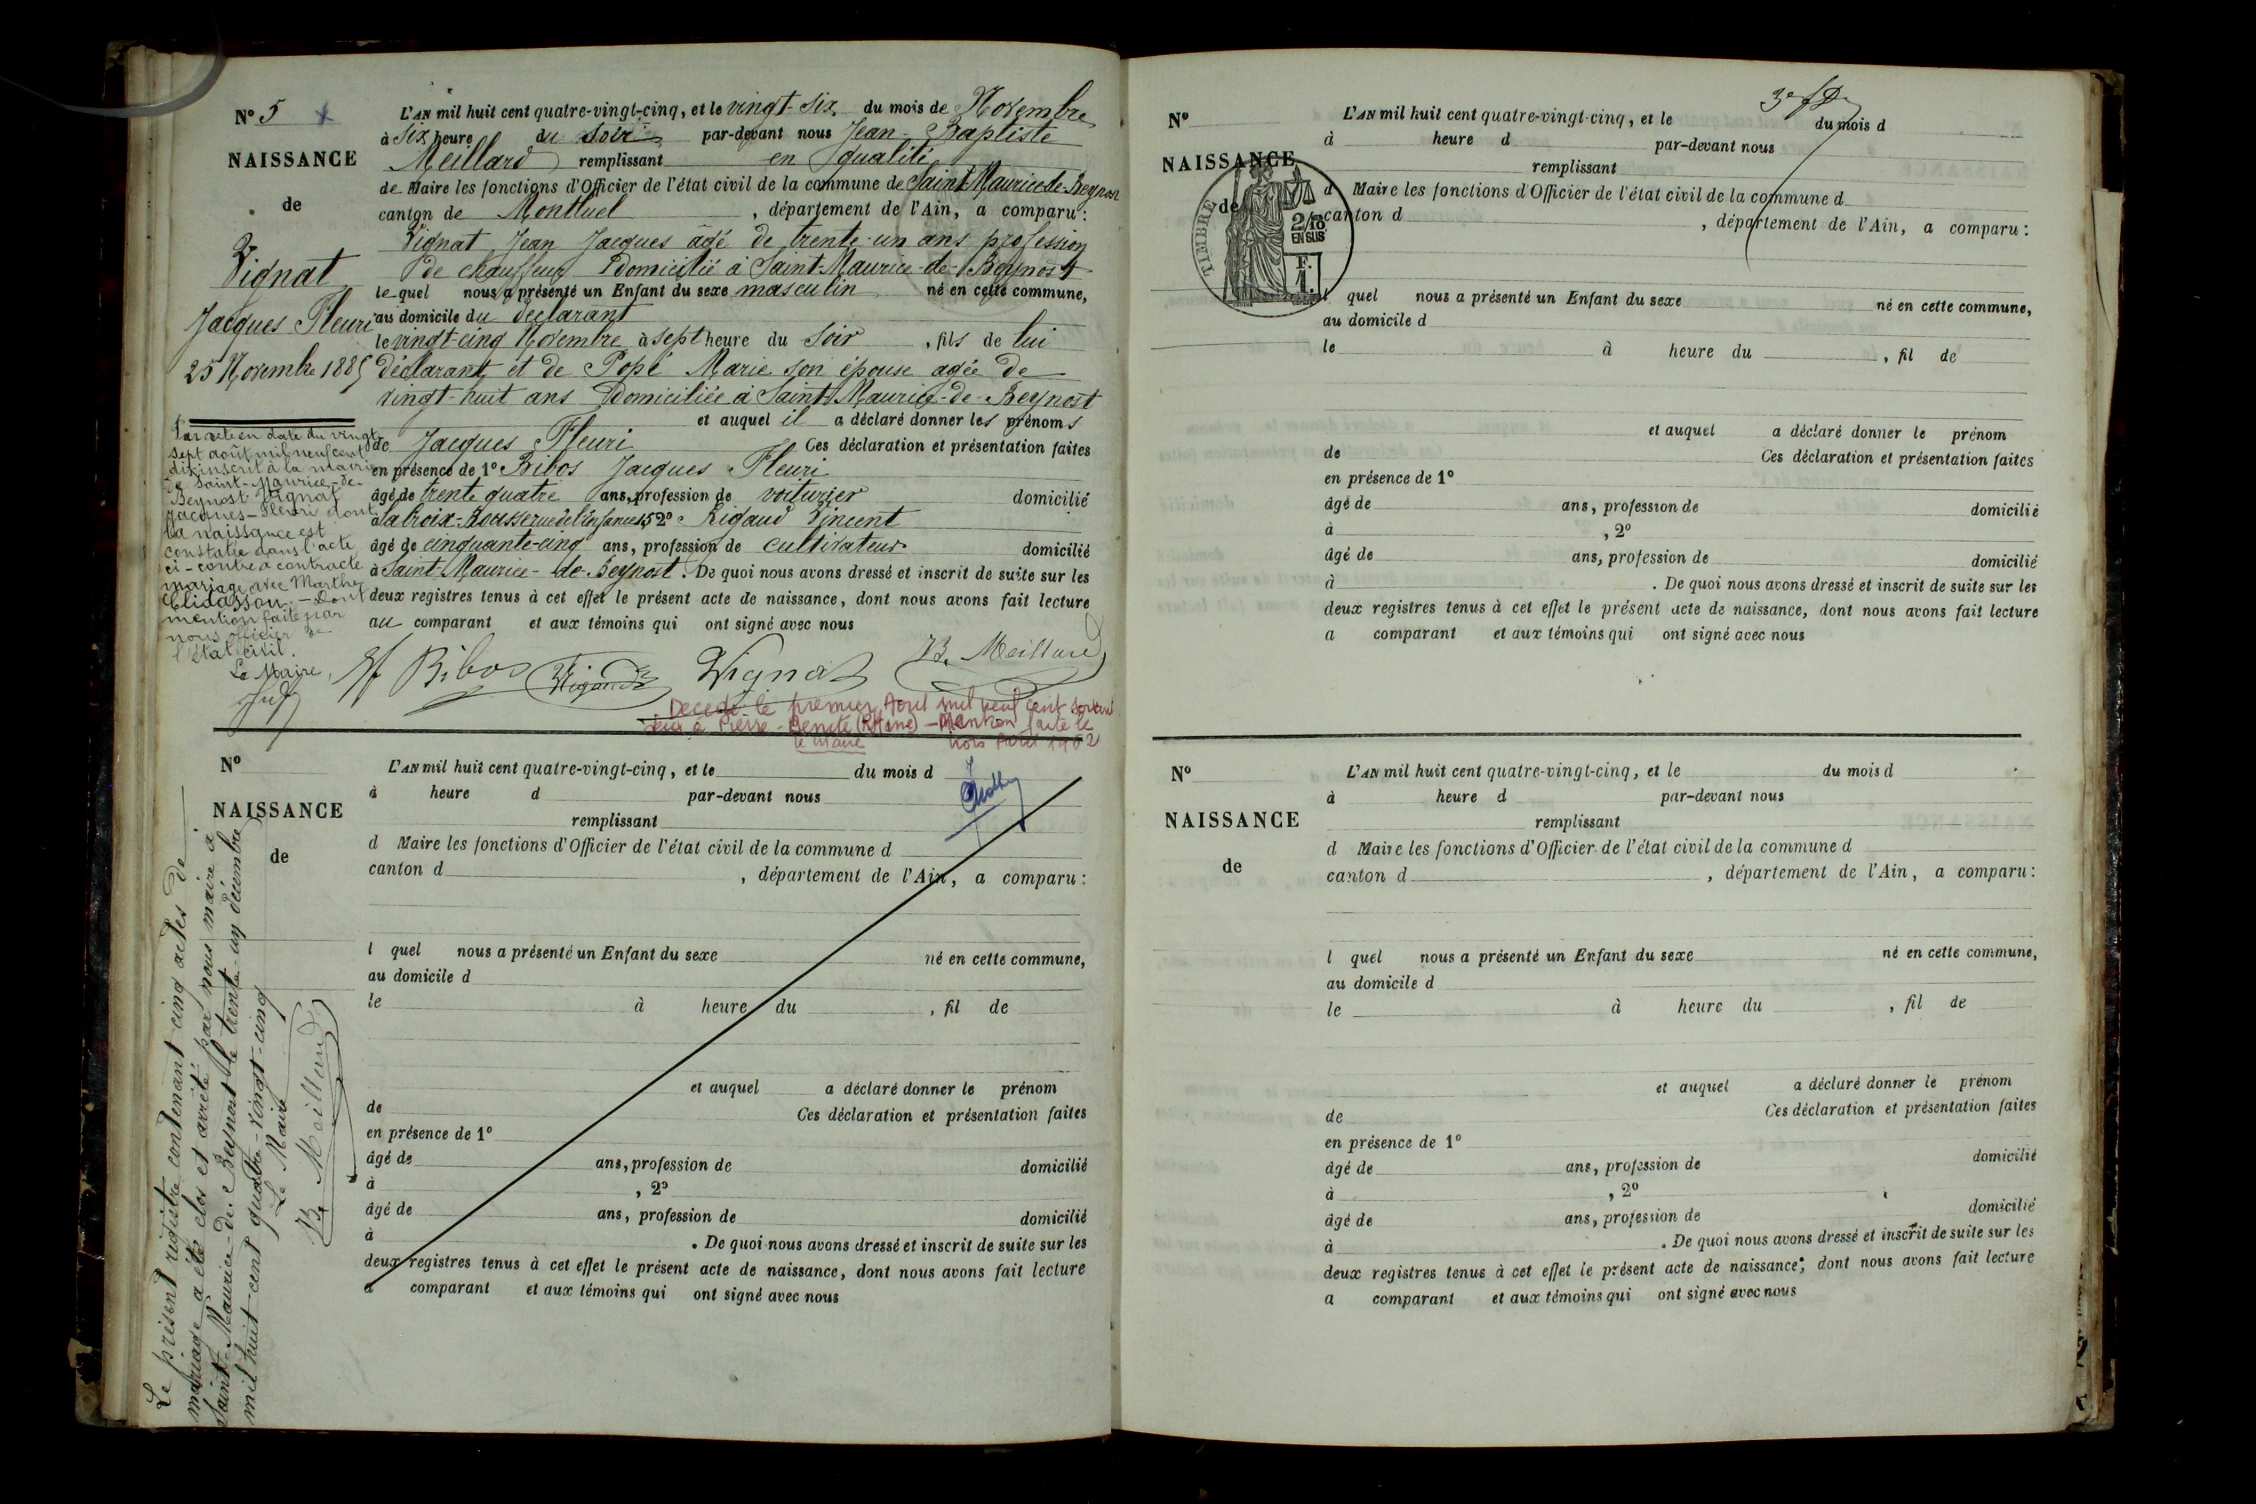 N° 5
NAISSANCE
de
Vignat
Jacques Fleuri
25 Novembre 1885
L'AN mil huit cent quatre-vingt-cinq, et le vingt-six du mois de Novembre
à six heure du soir par-devant nous Jean-Baptiste
Meillard remplissant en qualité
de Maire les fonctions d'Officier de l'état civil de la commune de Saint-Maurice-de-Beynost
canton de Montluel, département de l'Ain, a comparu:
Vignat Jean Jacques âgé de trente-un ans profession
de chauffeur Domicilié à Saint-Maurice-de-Beynost
lequel nous a présenté un Enfant du sexe masculin né en cette commune,
au domicile du déclarant
le vingt-cinq Novembre à sept heure du soir, fils de lui
déclarant et de Popé Marie son épouse agée de
vingt-huit ans Domiciliée à Saint-Maurice-de-Beynost
et auquel il a déclaré donner les prénoms
de Jacques Fleuri Ces déclaration et présentation faites
en présence de 1° Bibos Jacques Fleuri
âgé de trente quatre ans, profession de voiturier domicilié
à la Croix-Rousse rue de l'enfance 152° Rigaud Vincent
âgé de cinquante-cinq ans, profession de cultivateur domicilié
à Saint-Maurice-de-Beynost. De quoi nous avons dressé et inscrit de suite sur les
deux registres tenus à cet effet le présent acte de naissance, dont nous avons fait lecture
au comparant et aux témoins qui ont signé avec nous
Bibos Rigaud Vignat B. Meillard
Par acte en date du vingt
sept août mil neuf cent
dix inscrit à la mairie
de Saint-Maurice-de-
Beynost Vignat
Jacques-Fleuri dont
la naissance est
constatée dans l'acte
ci-contre a contracté
mariage avec Marthe
- Dont
mention faite par
nous officier de
l'état civil.
Le Maire,
Décédé le premier Aout mil neuf cent soixante
deux à Pierre-Bénite (Rhône) - Mention faite le
trois Aout 1962
le Maire
N°
NAISSANCE
de
L'AN mil huit cent quatre-vingt-cinq, et le du mois d
à heure d par-devant nous
remplissant
d Maire les fonctions d'Officier de l'état civil de la commune d
canton d , département de l'Ain, a comparu:
l quel nous a présenté un Enfant du sexe né en cette commune,
au domicile d
le à heure du , fil de
et auquel a déclaré donner le prénom
de Ces déclaration et présentation faites
en présence de 1°
âgé de ans, profession de domicilié
à , 2°
âgé de ans, profession de domicilié
à . De quoi nous avons dressé et inscrit de suite sur les
deux registres tenus à cet effet le présent acte de naissance, dont nous avons fait lecture
a comparant et aux témoins qui ont signé avec nous
Le présent registre contenant cinq actes de
mariage a été clos et arrêté par nous maire à
Saint-Maurice-de-Beynost le trente-un décembre
mil huit cent quatre-vingt-cinq
Le Maire
B. Meillard
N°
NAISSANCE
de
TIMBRE
2/10
EN SUS
F.
1.
L'AN mil huit cent quatre-vingt-cinq, et le du mois d
à heure d par-devant nous
remplissant
d Maire les fonctions d'Officier de l'état civil de la commune d
canton d , département de l'Ain, a comparu:
l quel nous a présenté un Enfant du sexe né en cette commune,
au domicile d
le à heure du , fil de
et auquel a déclaré donner le prénom
de Ces déclaration et présentation faites
en présence de 1°
âgé de ans, profession de domicilié
à , 2°
âgé de ans, profession de domicilié
à . De quoi nous avons dressé et inscrit de suite sur les
deux registres tenus à cet effet le présent acte de naissance, dont nous avons fait lecture
a comparant et aux témoins qui ont signé avec nous
N°
NAISSANCE
de
L'AN mil huit cent quatre-vingt-cinq, et le du mois d
à heure d par-devant nous
remplissant
d Maire les fonctions d'Officier de l'état civil de la commune d
canton d , département de l'Ain, a comparu:
l quel nous a présenté un Enfant du sexe né en cette commune,
au domicile d
le à heure du , fil de
et auquel a déclaré donner le prénom
de Ces déclaration et présentation faites
en présence de 1°
âgé de ans, profession de domicilié
à , 2°
âgé de ans, profession de domicilié
à . De quoi nous avons dressé et inscrit de suite sur les
deux registres tenus à cet effet le présent acte de naissance, dont nous avons fait lecture
a comparant et aux témoins qui ont signé avec nous